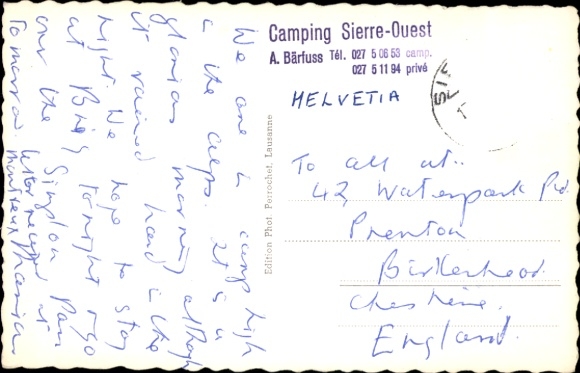 Camping Sierre-Ouest
A. Bärfuss Tél. 027 5 06 53 camp.
027 5 11 94 privé
HELVETIA
Edition Phot. Perrochet, Lausanne
To all at..
42, Waterpark Rd.
Prenton
Birkenhead.
Cheshire.
England.
We are in camp high
in the alps. It is a
glorious morning although
it rained hard in the
night. We hope to stay
at Brig tonight & go
over the Simplon Pass
Tomorrow. letter received at
montreux thanks